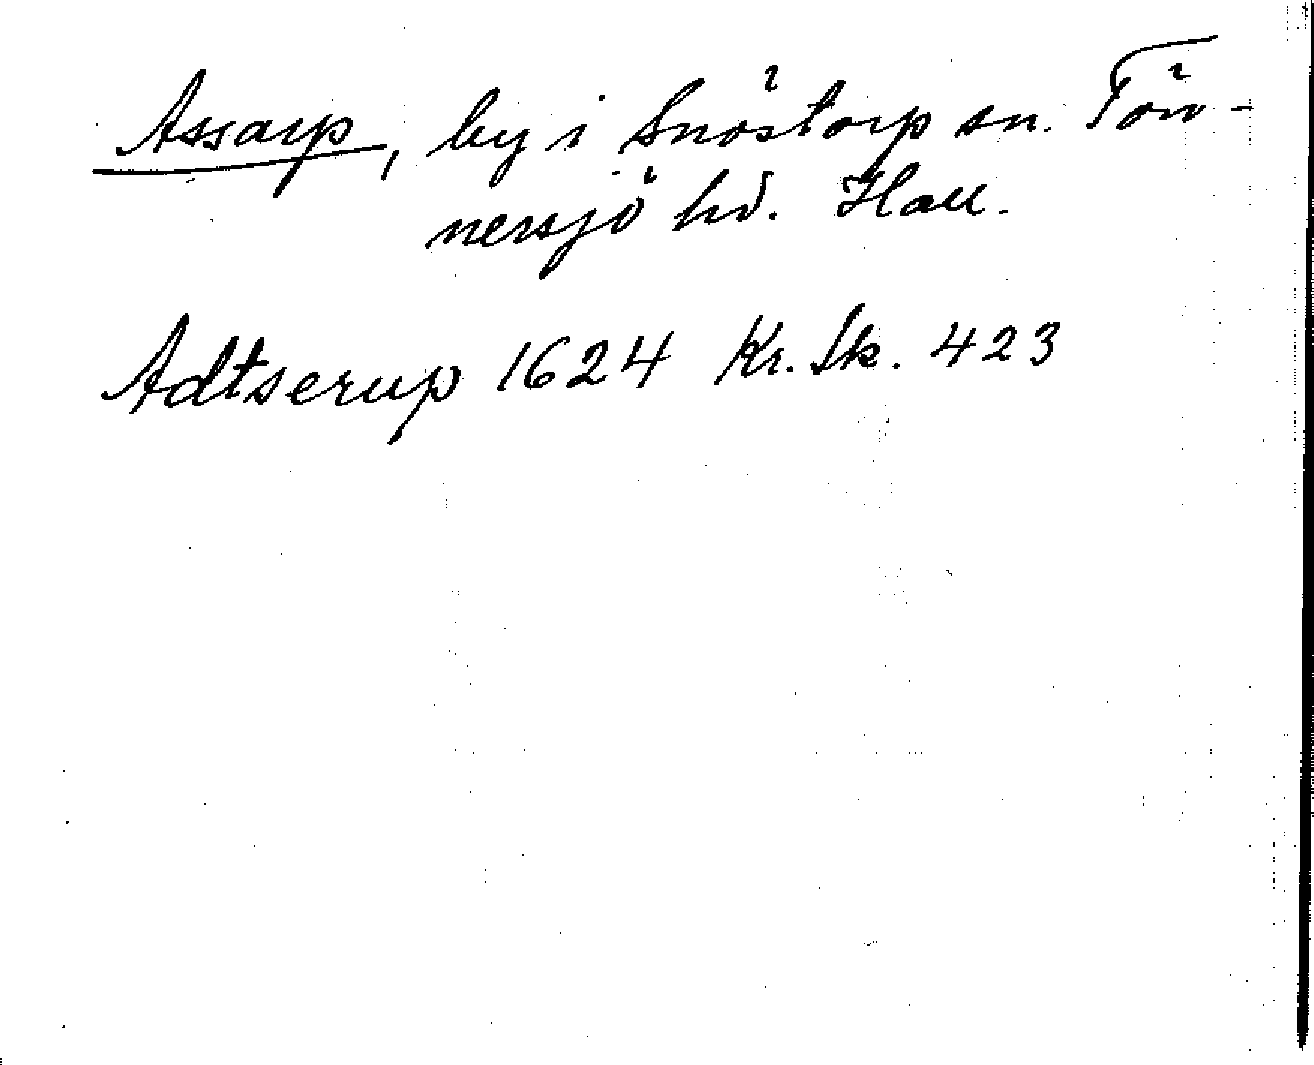 Assarp, by i Snöstorp sn. Tön-
nersjö hd. Hall.
Adtserup 1624 Kr. Sk. 423